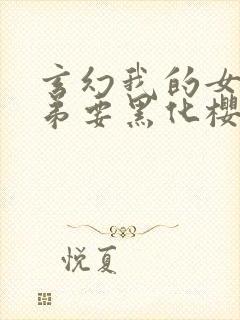 玄幻我的女
弟要黑化樱
悦夏